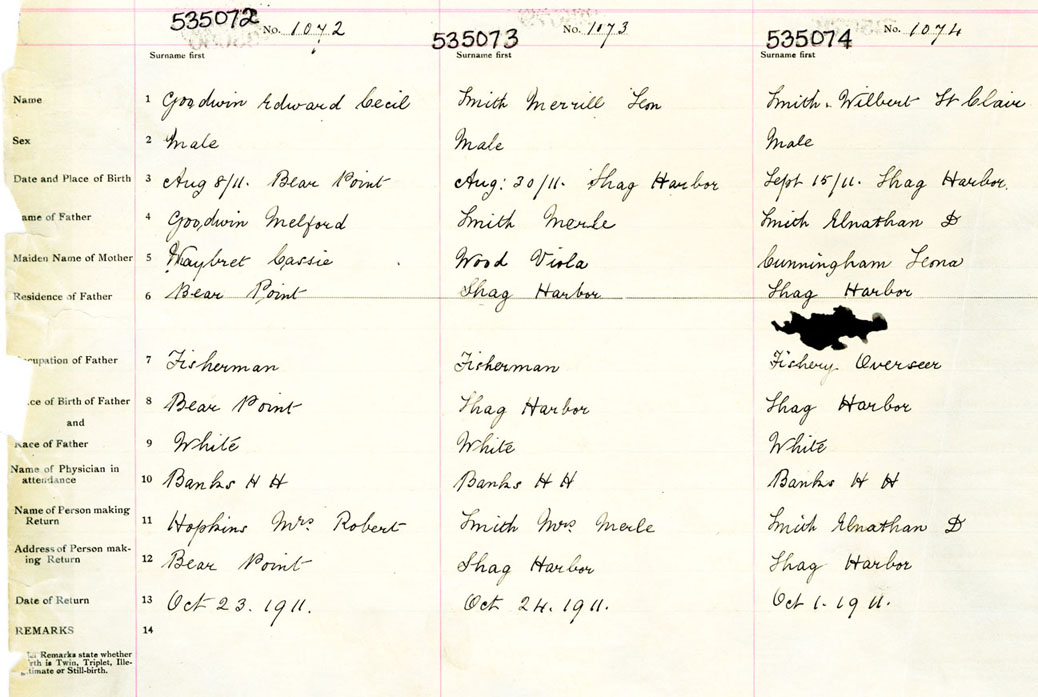 535072 No. 1072 535073 No. 1073 535074 No. 1074
Surname first Surname first Surname first
Name 1 Goodwin Edward Cecil Smith Merrill Leon Smith. Wilbert St Clair
Sex 2 Male Male Male
Date and Place of Birth 3 Aug 8/11. Bear Point Aug: 30/11. Shag Harbor Sept 15/11. Shag Harbor.
ame of Father 4 Goodwin Melford Smith Merle Smith Elnathan D
Maiden Name of Mother 5 Maybret Cassie Wood Viola Cunningham Leona
Residence of Father 6 Bear Point Shag Harbor Shag Harbor
cupation of Father 7 Fisherman Fisherman Fishery Overseer
ce of Birth of Father 8 Bear Point Shag Harbor Shag Harbor
and
Race of Father 9 White White White
Name of Physician in
attendance 10 Banks H H Banks H H Banks H H
Name of Person making
Return 11 Hopkins Mrs Robert Smith Mrs Merle Smith Elnathan D
Address of Person mak-
ing Return 12 Bear Point Shag Harbor Shag Harbor
Date of Return 13 Oct 23. 1911. Oct 24. 1911. Oct 1. 1911.
REMARKS 14
Remarks state whether
rth is Twin, Triplet, Ille-
gitimate or Still-birth.